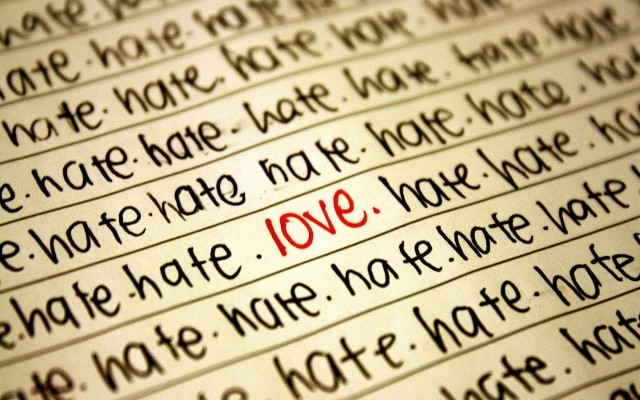 hate. hate
hate. hate. hate
hate. hate. hate. hate. hate
e. hate. hate. hate. hate. hate. hate
e. hate. hate hate. hate. hate. ha
e. hate. hate . love. hate. hate. ha
ate. hate. hate. hate. hate. hate
e. hate. hate. hate
hate. hat